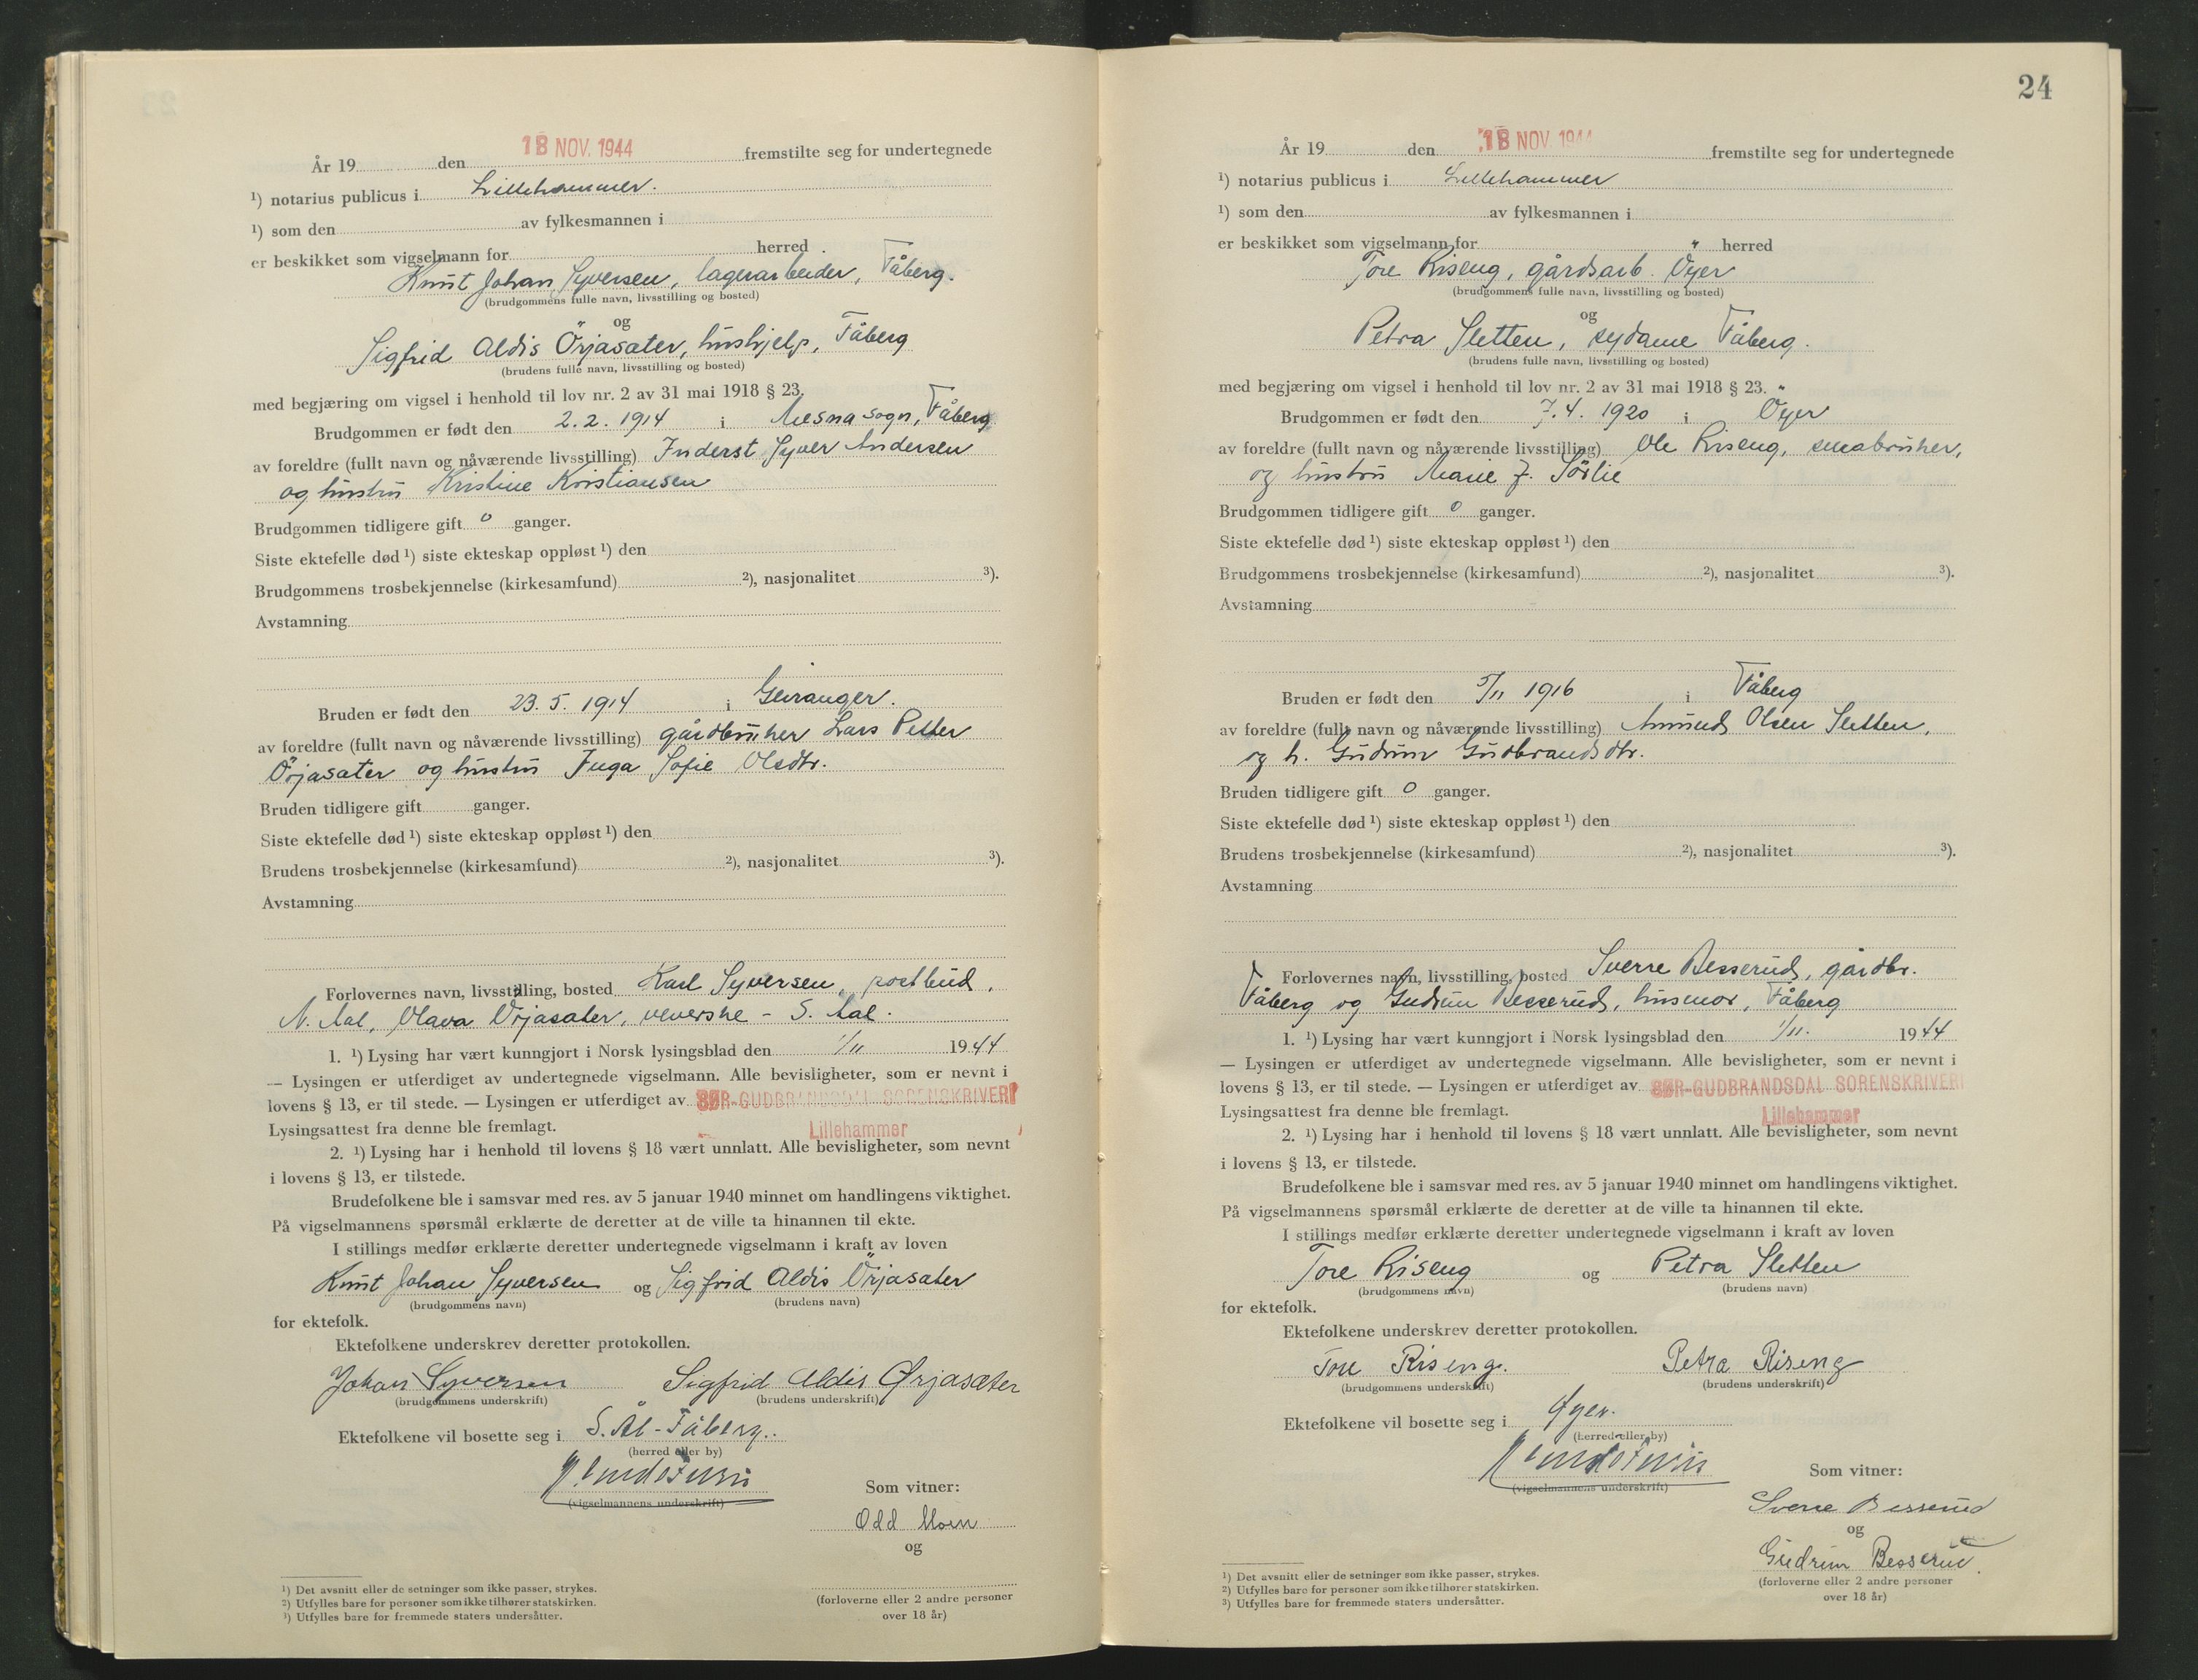 År 19 den 18 NOV. 1944 fremstilte seg for undertegnede
¹) notarius publicus i Lillehammer.
¹) som den av fylkesmannen i
er beskikket som vigselmann for herred
Knut Johan Syversen, lagerarbeider, Fåberg.
(brudgommens fulle navn, livsstilling og bosted)
og
Sigfrid Aldis Örjasäter, hushjelp, Fåberg
(brudens fulle navn, livsstilling og bosted)
med begjæring om vigsel i henhold til lov nr. 2 av 31 mai 1918 § 23.
Brudgommen er født den 2.2. 1914 i Mesna sogn, Fåberg
av foreldre (fullt navn og nåværende livsstilling) Inderst Syver Andersen
og hustru Kristine Kristiansen
Brudgommen tidligere gift 0 ganger.
Siste ektefelle død ¹) siste ekteskap oppløst ¹) den
Brudgommens trosbekjennelse (kirkesamfund) ²), nasjonalitet ³).
Avstamning
Bruden er født den 23. 5. 1914 i Geiranger.
av foreldre (fullt navn og nåværende livsstilling) gårdbruker Lars Petter
Örjasäter og hustru Inga Sofie Olsdtr.
Bruden tidligere gift ganger.
Siste ektefelle død ¹) siste ekteskap oppløst ¹) den
Brudens trosbekjennelse (kirkesamfund) ²), nasjonalitet ³).
Avstamning
Forlovernes navn, livsstilling, bosted Karl Syversen, postbud,
N. Aal, Olava Örjasäter, veverske - S. Aal.
1. ¹) Lysing har vært kunngjort i Norsk lysingsblad den 1/11 1944
— Lysingen er utferdiget av undertegnede vigselmann. Alle bevisligheter, som er nevnt i
lovens § 13, er til stede. — Lysingen er utferdiget av SØR-GUDBRANDSDAL SORENSKRIVERI
Lysingsattest fra denne ble fremlagt. Lillehammer
2. ¹) Lysing har i henhold til lovens § 18 vært unnlatt. Alle bevisligheter, som nevnt
i lovens § 13, er tilstede.
Brudefolkene ble i samsvar med res. av 5 januar 1940 minnet om handlingens viktighet.
På vigselmannens spørsmål erklærte de deretter at de ville ta hinannen til ekte.
I stillings medfør erklærte deretter undertegnede vigselmann i kraft av loven
Knut Johan Syversen og Sigfrid Aldis Örjasäter
(brudgommens navn) (brudens navn)
for ektefolk.
Ektefolkene underskrev deretter protokollen.
Johan Syversen Sigfrid Aldis Ørjasæter
(brudgommens underskrift) (brudens underskrift)
Ektefolkene vil bosette seg i S. Ål - Fåberg.
(herred eller by)
(vigselmannens underskrift)
Som vitner:
Odd Moen
og
(forloverne eller 2 andre personer
over 18 år)
¹) Det avsnitt eller de setninger som ikke passer, strykes.
²) Utfylles bare for personer som ikke tilhører statskirken.
³) Utfylles bare for fremmede staters undersåtter.
24
År 19 den 18 NOV. 1944 fremstilte seg for undertegnede
¹) notarius publicus i Lillehammer
¹) som den av fylkesmannen i
er beskikket som vigselmann for herred
Tore Riseng, gårdsarb. Öyer
(brudgommens fulle navn, livsstilling og bosted)
og
Petra Sletten, sydame Fåberg.
(brudens fulle navn, livsstilling og bosted)
med begjæring om vigsel i henhold til lov nr. 2 av 31 mai 1918 § 23.
Brudgommen er født den 7.4. 1920 i Öyer
av foreldre (fullt navn og nåværende livsstilling) Ole Riseng, småbruker,
og hustru Marie J. Sörlie
Brudgommen tidligere gift 0 ganger.
Siste ektefelle død ¹) siste ekteskap oppløst ¹) den
Brudgommens trosbekjennelse (kirkesamfund) ²), nasjonalitet ³).
Avstamning
Bruden er født den 5/11 1916 i Fåberg
av foreldre (fullt navn og nåværende livsstilling) Amund Olsen Sletten,
og h. Gudrun Gudbrandsdtr.
Bruden tidligere gift 0 ganger.
Siste ektefelle død ¹) siste ekteskap oppløst ¹) den
Brudens trosbekjennelse (kirkesamfund) ²), nasjonalitet ³).
Avstamning
Forlovernes navn, livsstilling, bosted Sverre Besserud, gårdbr.
Fåberg og Gudrun Besserud, husmor, Fåberg
1. ¹) Lysing har vært kunngjort i Norsk lysingsblad den 1/11. 1944
— Lysingen er utferdiget av undertegnede vigselmann. Alle bevisligheter, som er nevnt i
lovens § 13, er til stede. — Lysingen er utferdiget av SØR-GUDBRANDSDAL SORENSKRIVERI
Lysingsattest fra denne ble fremlagt. Lillehammer
2. ¹) Lysing har i henhold til lovens § 18 vært unnlatt. Alle bevisligheter, som nevnt
i lovens § 13, er tilstede.
Brudefolkene ble i samsvar med res. av 5 januar 1940 minnet om handlingens viktighet.
På vigselmannens spørsmål erklærte de deretter at de ville ta hinannen til ekte.
I stillings medfør erklærte deretter undertegnede vigselmann i kraft av loven
Tore Riseng og Petra Sletten
(brudgommens navn) (brudens navn)
for ektefolk.
Ektefolkene underskrev deretter protokollen.
Tore Riseng. Petra Riseng
(brudgommens underskrift) (brudens underskrift)
Ektefolkene vil bosette seg i Øyer.
(herred eller by)
(vigselmannens underskrift)
Som vitner:
Sverre Besserud
og
Gudrun Besserud.
(forloverne eller 2 andre personer
over 18 år)
¹) Det avsnitt eller de setninger som ikke passer, strykes.
²) Utfylles bare for personer som ikke tilhører statskirken.
³) Utfylles bare for fremmede staters undersåtter.